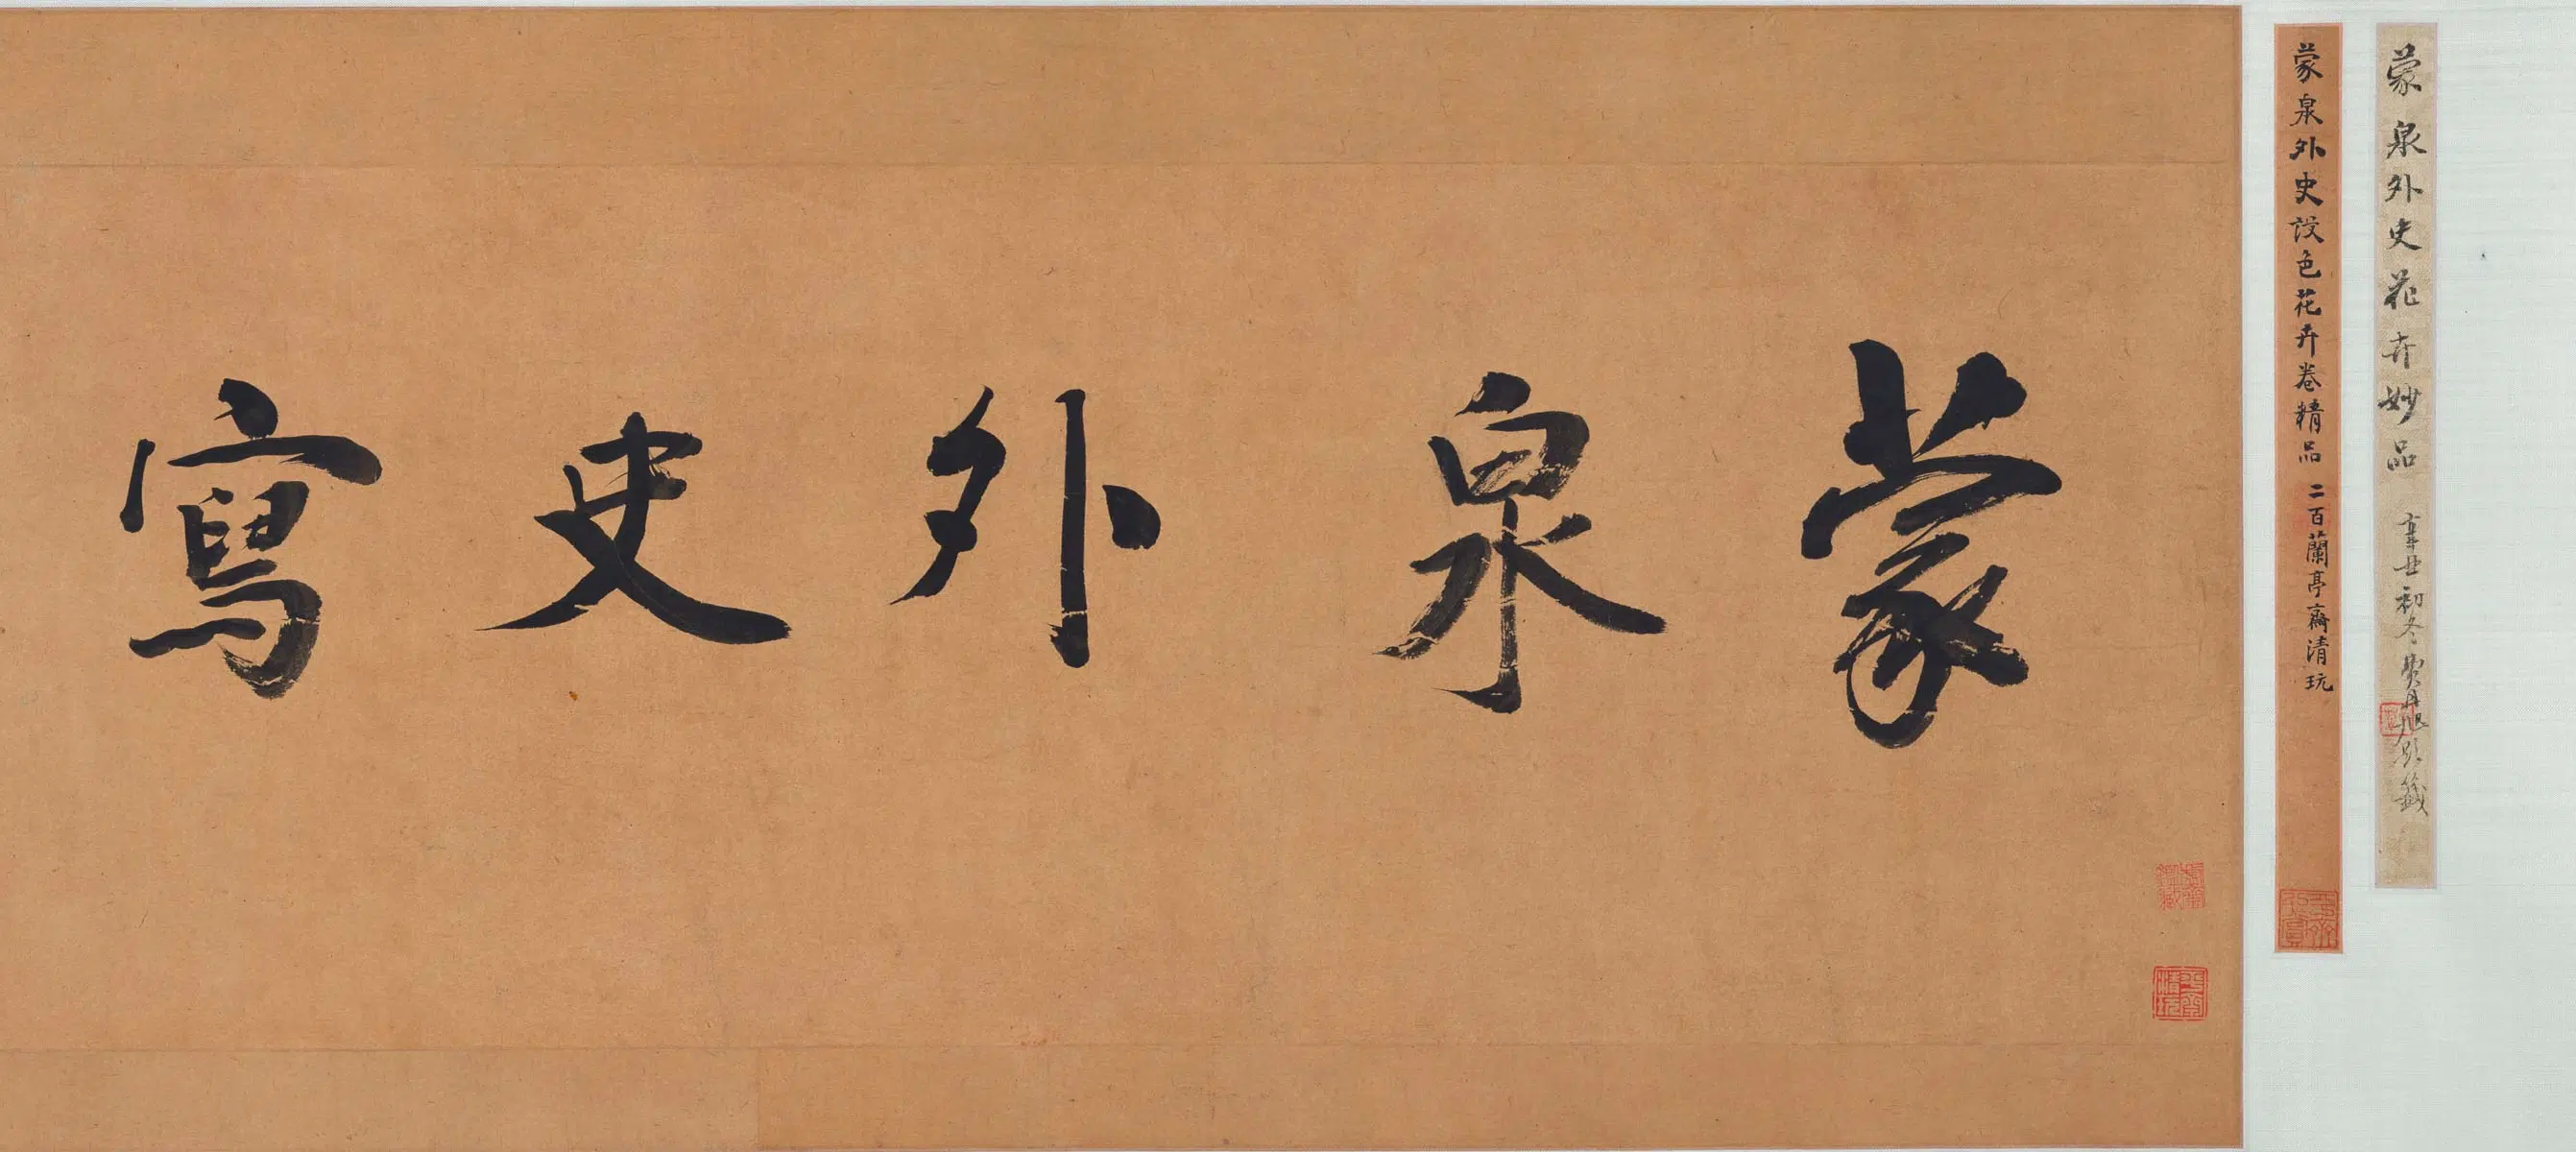 蒙泉外史花卉妙品
辛丑初冬費丹旭題籤
蒙泉外史設色花卉卷精品
二百蘭亭齋清玩
蒙泉外史寫